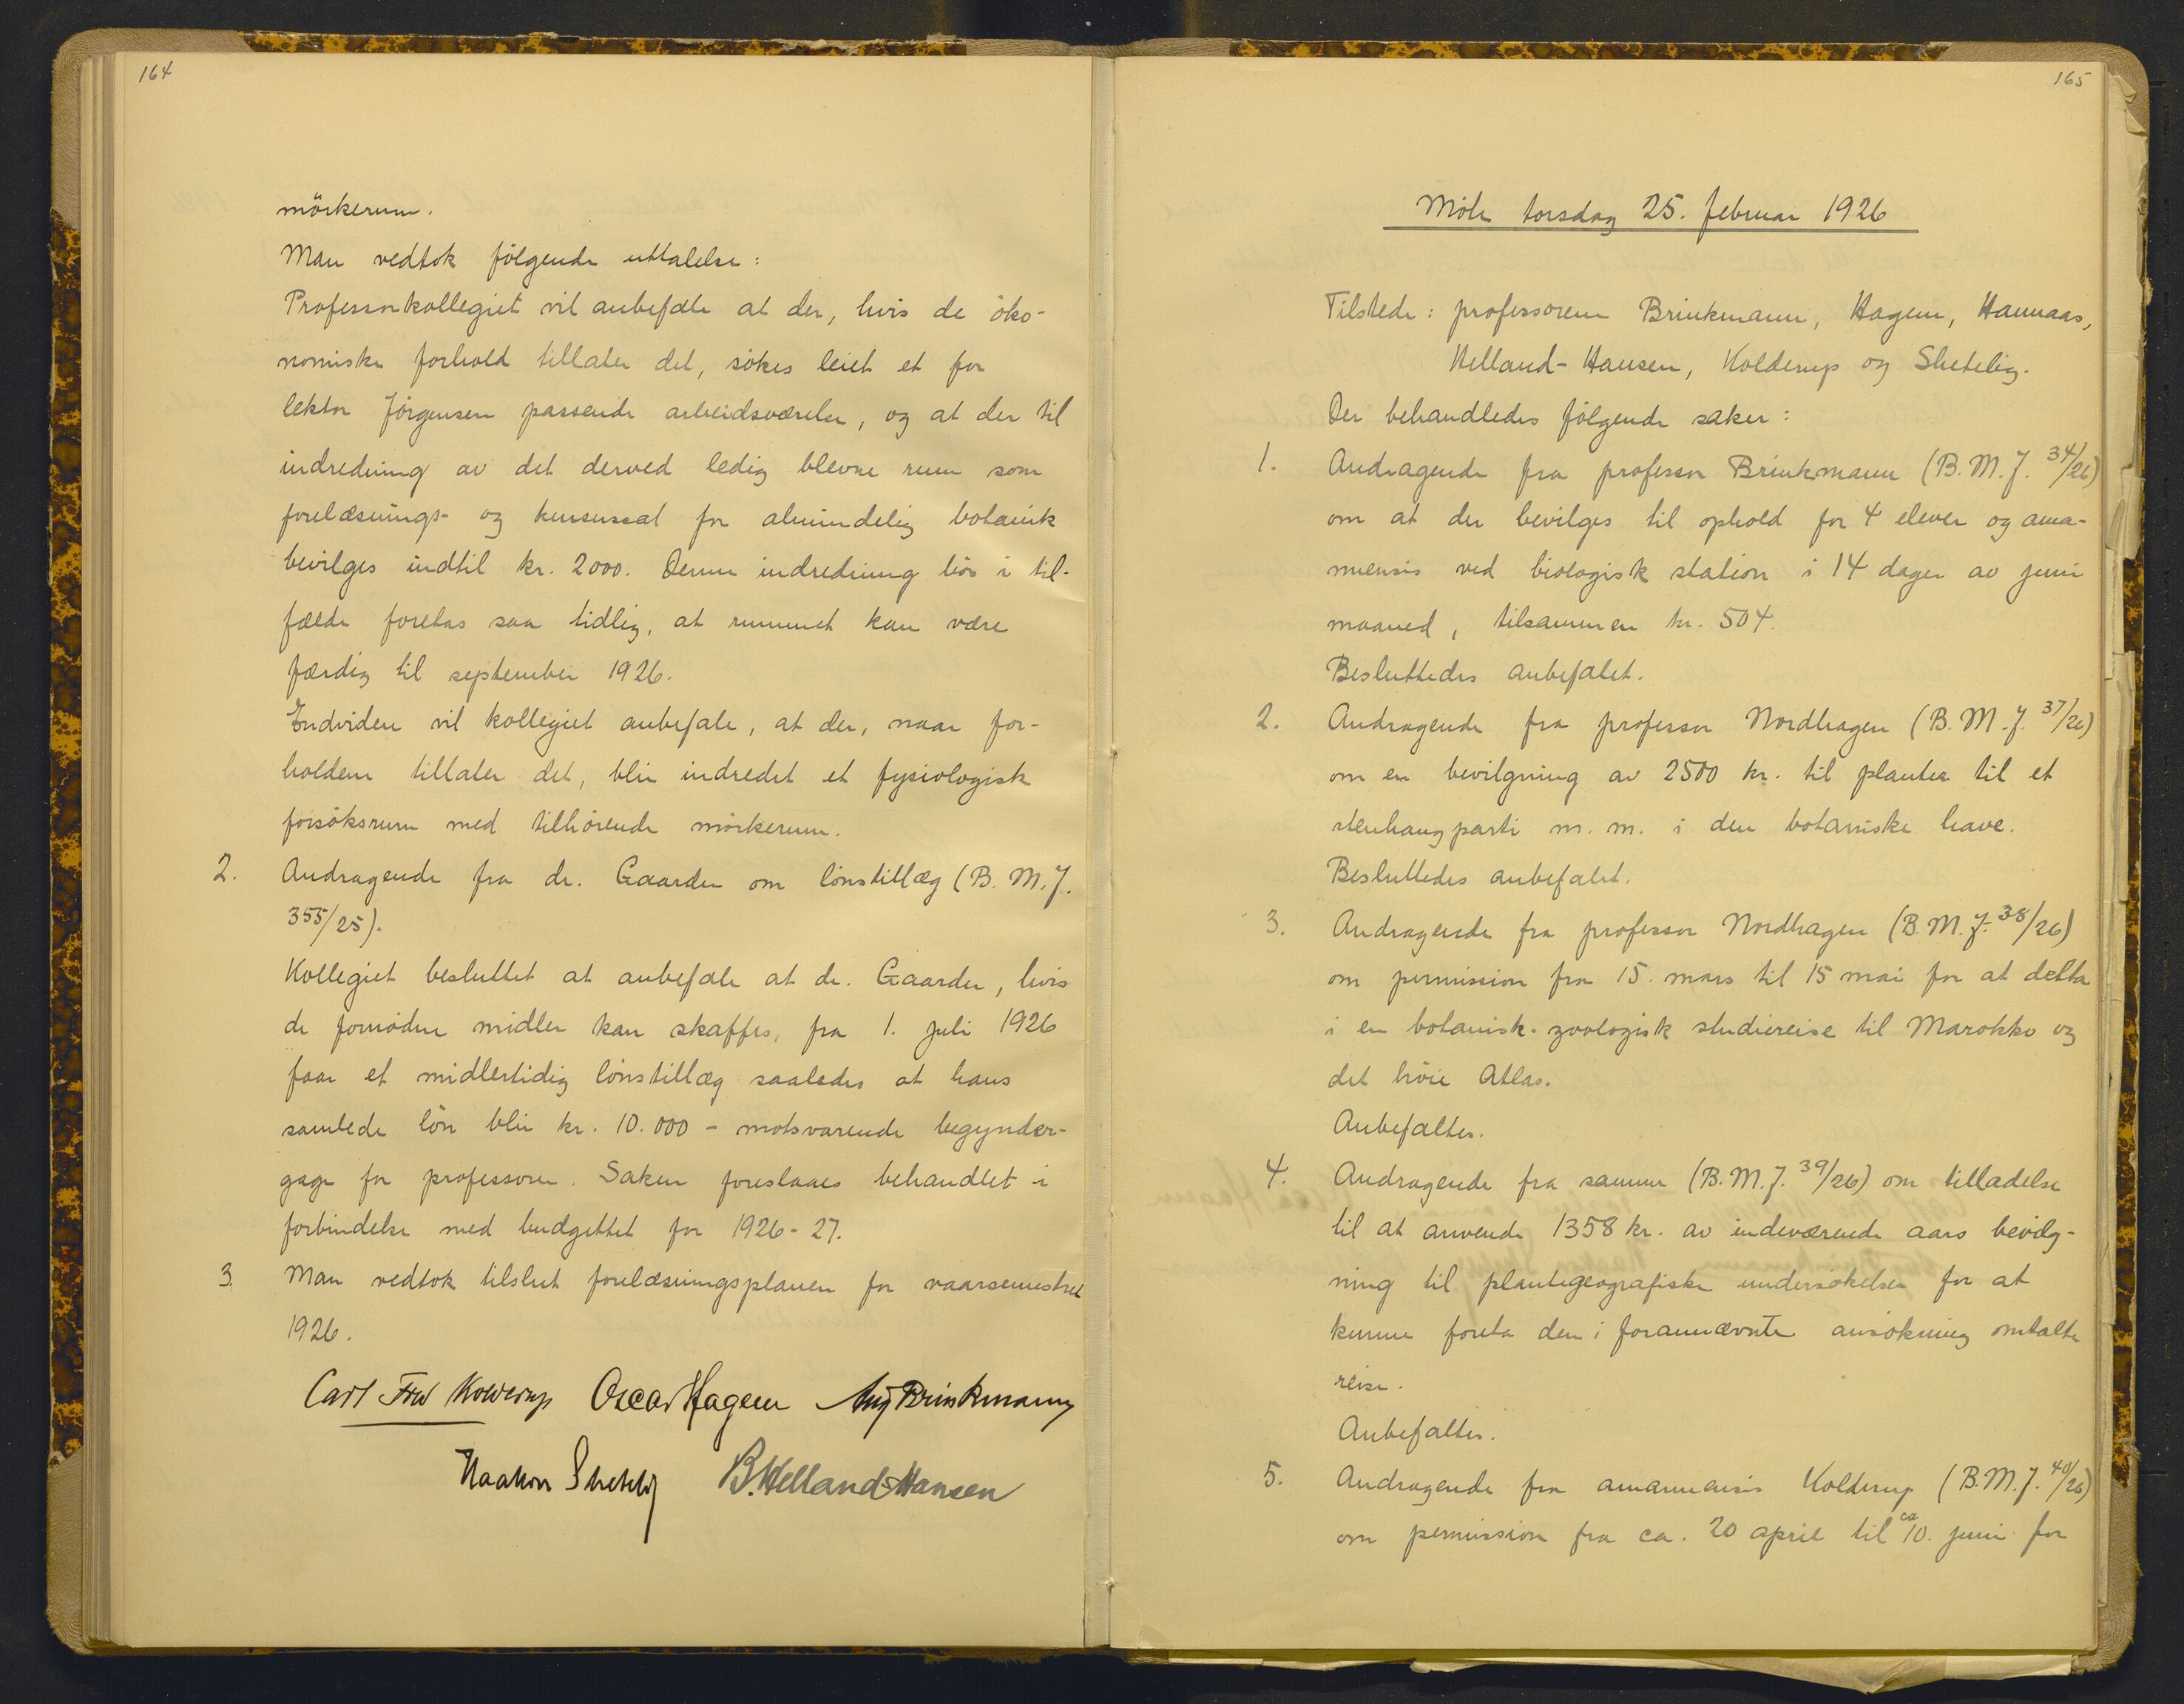 164
mörkerum.
Man vedtok følgende uttalelse:
Professorkollegiet vil anbefale at der, hvis de öko-
nomiske forhold tillater det, søkes leiet et for
lektor Jørgensen passende arbeidsværelse, og at der til
indredning av det derved ledig blevne rum som
forelæsnings- og kursussal for almindelig botanik
bevilges indtil kr. 2000. Denne indredning bør i til-
fælde foretas saa tidlig, at rummet kan være
færdig til september 1926.
Endvidere vil kollegiet anbefale, at der, naar for-
holdene tillater det, blir indredet et fysiologisk
forsøksrum med tilhörende mörkerum.
2. Andragende fra dr. Gaarder om lønstillæg (B. M. J.
355/25).
Kollegiet besluttet at anbefale at dr. Gaarder, hvis
de fornødne midler kan skaffes, fra 1. juli 1926
faar et midlertidig lønstillæg saaledes at hans
samlede løn blir kr. 10.000 - motsvarende begynder-
gage for professorer. Saken foreslaaes behandlet i
forbindelse med budgettet for 1926-27.
3. Man vedtok tilslut forelæsningsplanen for vaarsemestret
1926.
Carl Fred Kolderup Oscar Hagem Aug Brinkmann
Haakon Shetelig B. Helland-Hansen
165
Møte torsdag 25. februar 1926
Tilstede: professorene Brinkmann, Hagem, Hannaas,
Helland-Hansen, Kolderup og Shetelig.
Der behandledes følgende saker:
1. Andragende fra professor Brinkmann (B. M. J. 34/26)
om at der bevilges til ophold for 4 elever og ama-
nuensis ved biologisk station i 14 dager av juni
maaned, tilsammen kr. 504.
Besluttedes anbefalet.
2. Andragende fra professor Nordhagen (B. M. J. 37/26)
om en bevilgning av 2500 kr. til planter til et
stenhaugparti m. m. i den botaniske have.
Besluttedes anbefalet.
3. Andragende fra professor Nordhagen (B. M. J. 38/26)
om permission fra 15. mars til 15 mai for at delta
i en botanisk-zoologisk studiereise til Marokko og
det høie Atlas.
Anbefaltes.
4. Andragende fra samme (B. M. J. 39/26) om tilladelse
til at anvende 1358 kr. av indeværende aars bevilg-
ning til plantegeografiske undersøkelser for at
kunne foreta den i forannævnte ansøkning omtalte
reise.
Anbefaltes.
5. Andragende fra amanuensis Kolderup (B. M. J. 40/26)
om permission fra ca. 20 april til ca 10. juni for